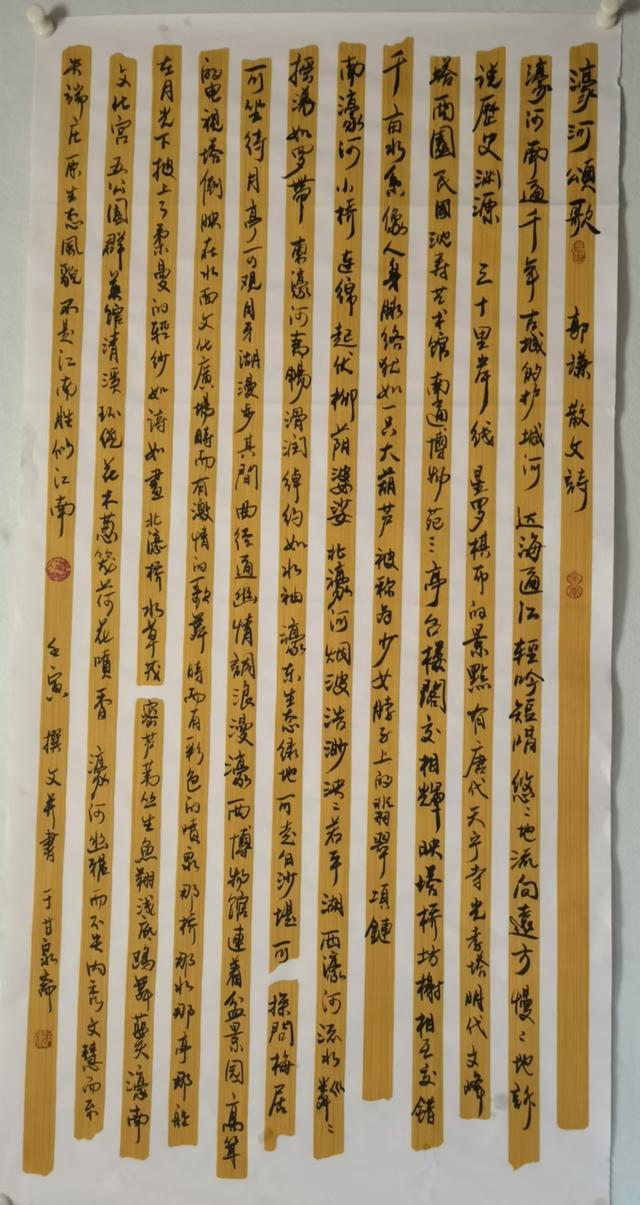 濠河頌歌 郭謙 散文詩
濠河南通千年古城的护城河 近海通江輕吟短唱 悠悠地流向遠方 慢慢地訴
说歷史渊源 三十里岸线 星罗棋布的景點 有唐代天宁寺光孝塔明代文峰
塔西園民國沈寿艺术館 南通博物苑 三亭台楼閣交相輝映 塔桥坊榭相互交錯
千亩水系 像人身脉络犹如一只大葫芦 被称为少女脖子上的翡翠項鏈
南濠河小桥 连绵起伏柳荫婆娑 北濠河烟波浩渺泱泱若平湖 西濠河流水粼粼
摇漾如罗带 東濠河畅滑润绰约如水袖 濠东生态绿地 可走白沙堤 可 探問梅居
可坐待月亭 可观月牙湖 漫步其間 曲径通幽情調浪漫 濠西博物館連着盆景園 高耸
的電視塔倒映在水面 文化廣場時而有激情的歌舞 時而有彩色的噴泉 那桥那水那亭那船
在月光下披上了柔曼的輕纱如詩如畫 北濠桥水草茂 密芦苇丛生魚翔浅底鸥舞 濠南
文化宫五公園群英館清溪环绕花木葱笼荷花噴香 濠河幽雅而不失内秀文慧而不
失端庄原生态風貌 不是江南胜似江南 壬寅 撰文并書 于甘泉斋